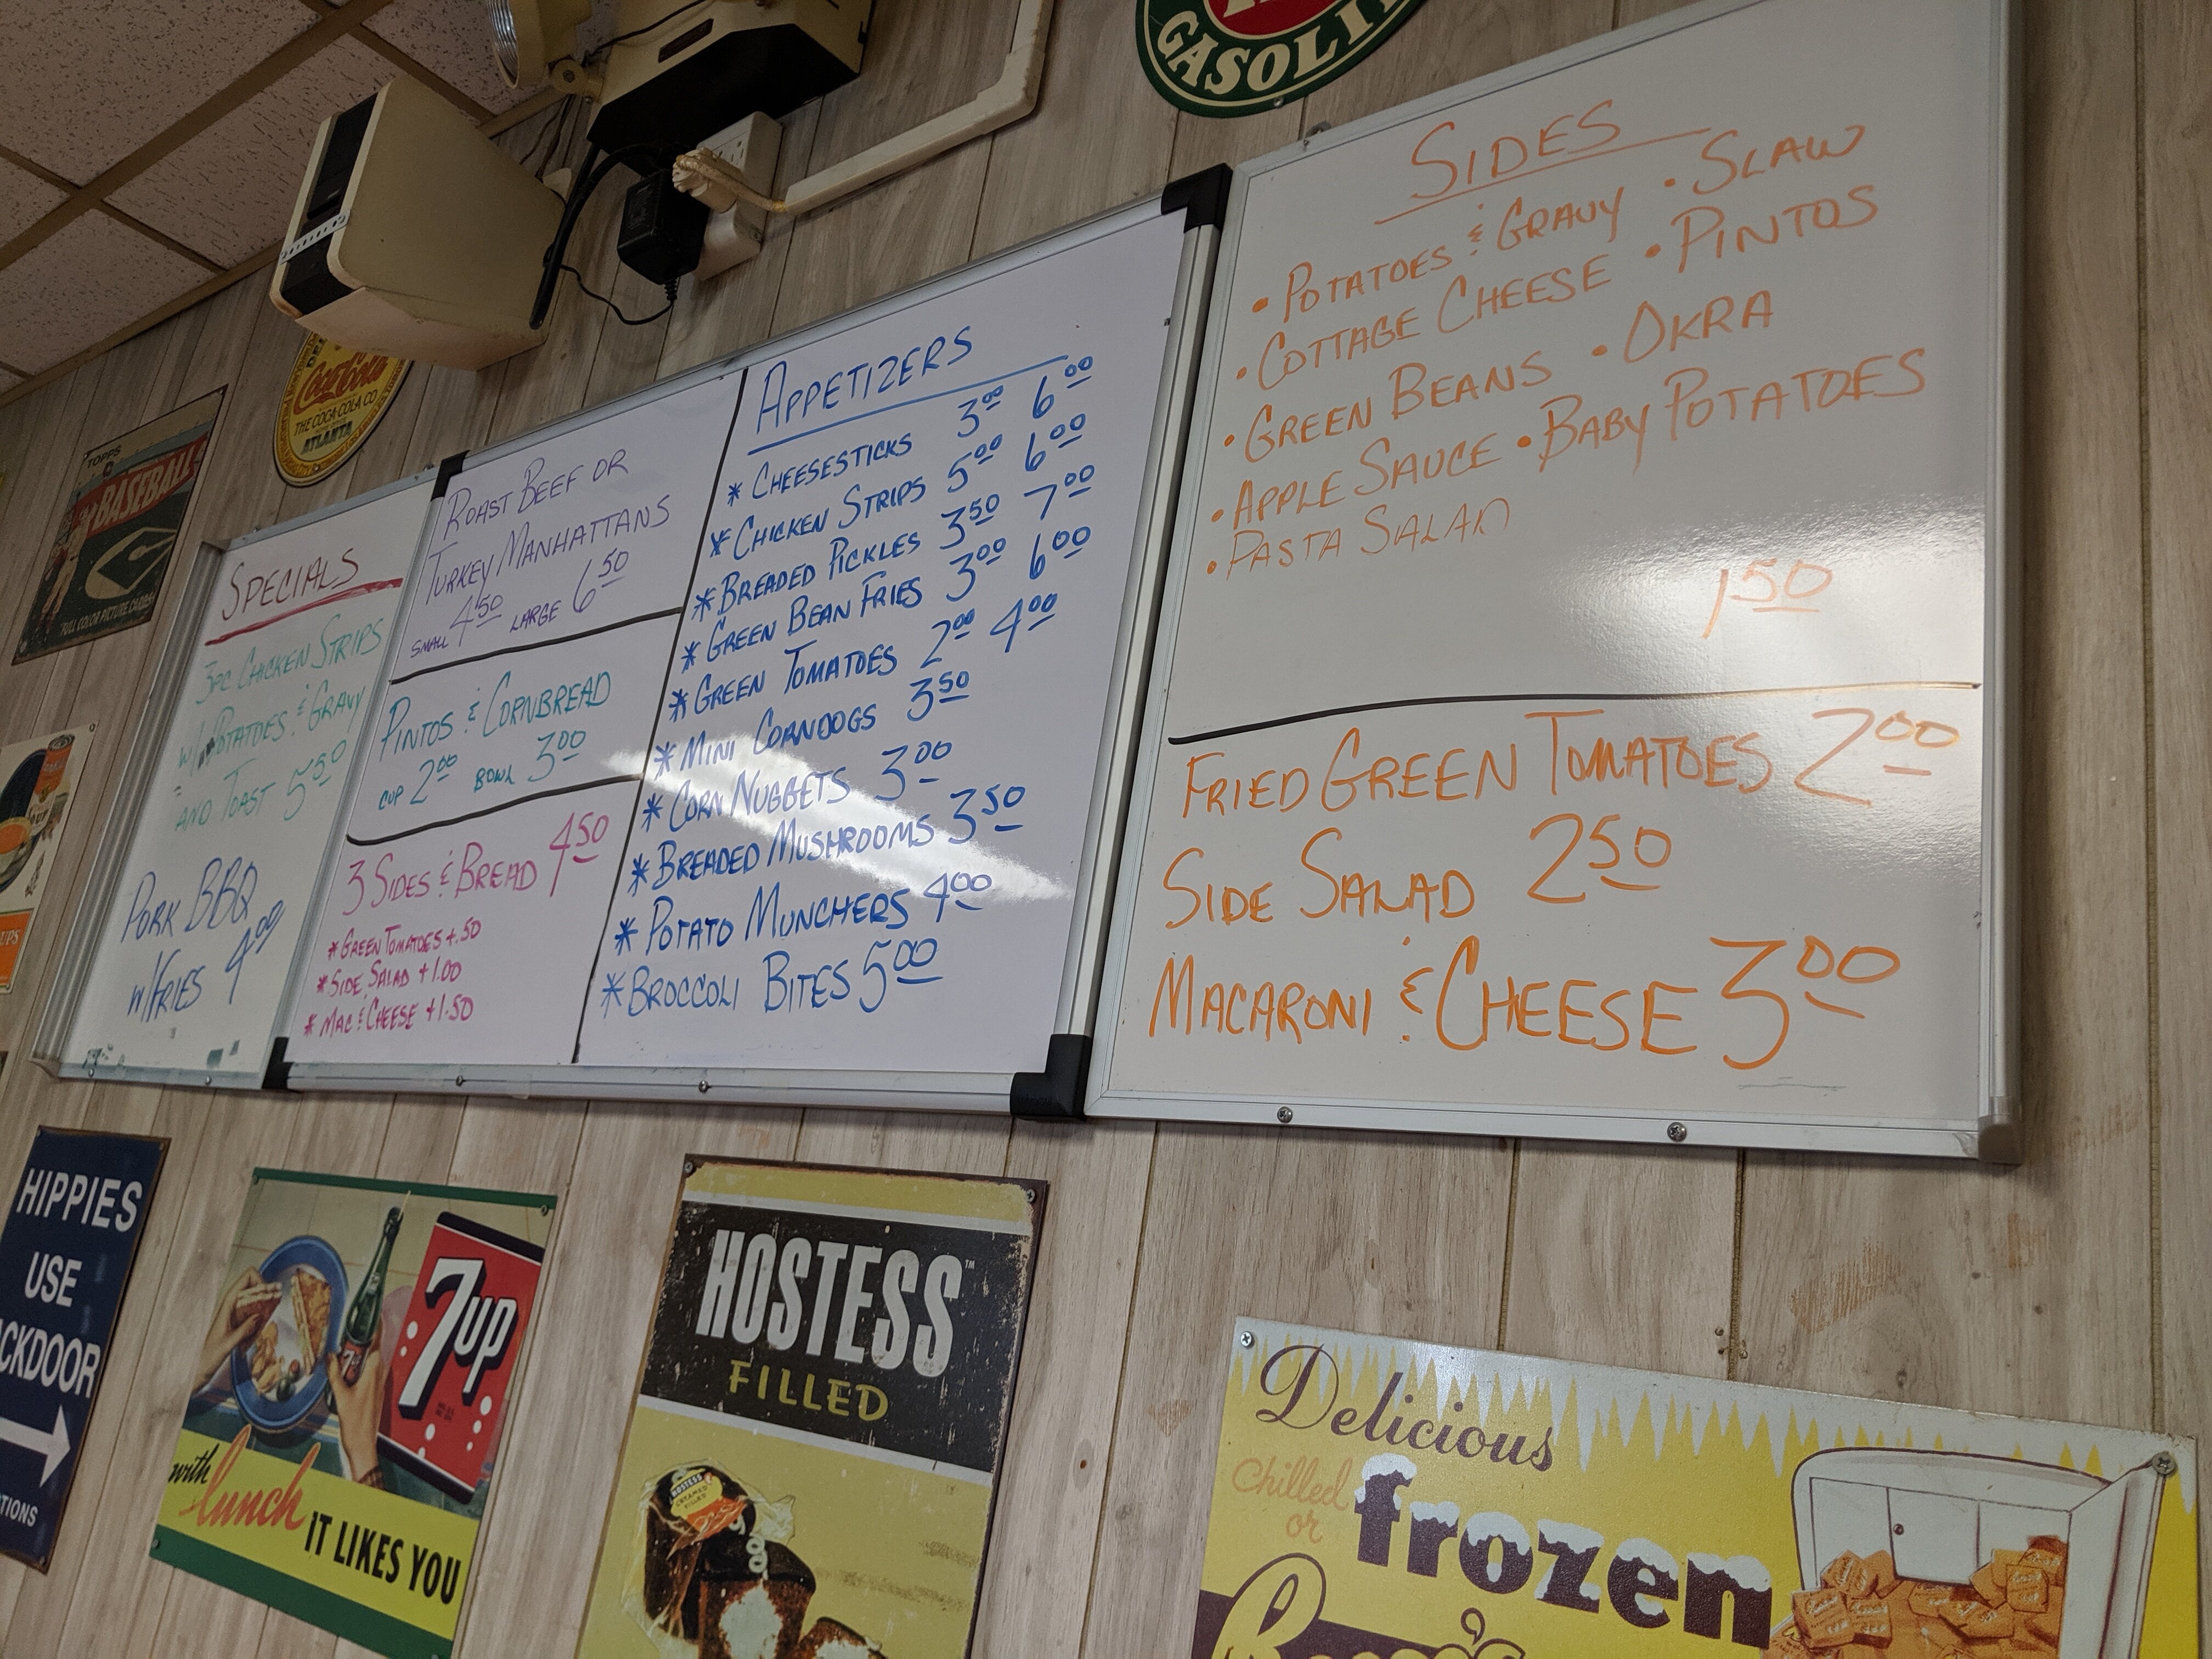 SPECIALS
3PC CHICKEN STRIPS
W/ POTATOES & GRAVY
AND TOAST 5.50
PORK BBQ
W/FRIES 4.00
ROAST BEEF OR
TURKEY MANHATTANS
SMALL 4.50 LARGE 6.50
PINTOS & CORNBREAD
CUP 2.00 BOWL 3.00
3 SIDES & BREAD 4.50
* GREEN TOMATOES +.50
* SIDE SALAD +1.00
* MAC & CHEESE +1.50
APPETIZERS
* CHEESESTICKS 3.00 6.00
* CHICKEN STRIPS 5.00 6.00
* BREADED PICKLES 3.50 7.00
* GREEN BEAN FRIES 3.00 6.00
* GREEN TOMATOES 2.00 4.00
* MINI CORNDOGS 3.50
* CORN NUGGETS 3.00
* BREADED MUSHROOMS 3.50
* POTATO MUNCHERS 4.00
* BROCCOLI BITES 5.00
SIDES
• POTATOES & GRAVY • SLAW
• COTTAGE CHEESE • PINTOS
• GREEN BEANS • OKRA
• APPLE SAUCE • BABY POTATOES
• PASTA SALAD
1.50
FRIED GREEN TOMATOES 2.00
SIDE SALAD 2.50
MACARONI & CHEESE 3.00
GASOLI
Coca-Cola
THE COCA-COLA CO
ATLANTA
TOPPS
BASEBALL
FULL COLOR PICTURE CARDS
UPS
HIPPIES
USE
CKDOOR
TIONS
7up
with lunch IT LIKES YOU
HOSTESS™
FILLED
HOSTESS
Delicious
Chilled
or
frozen